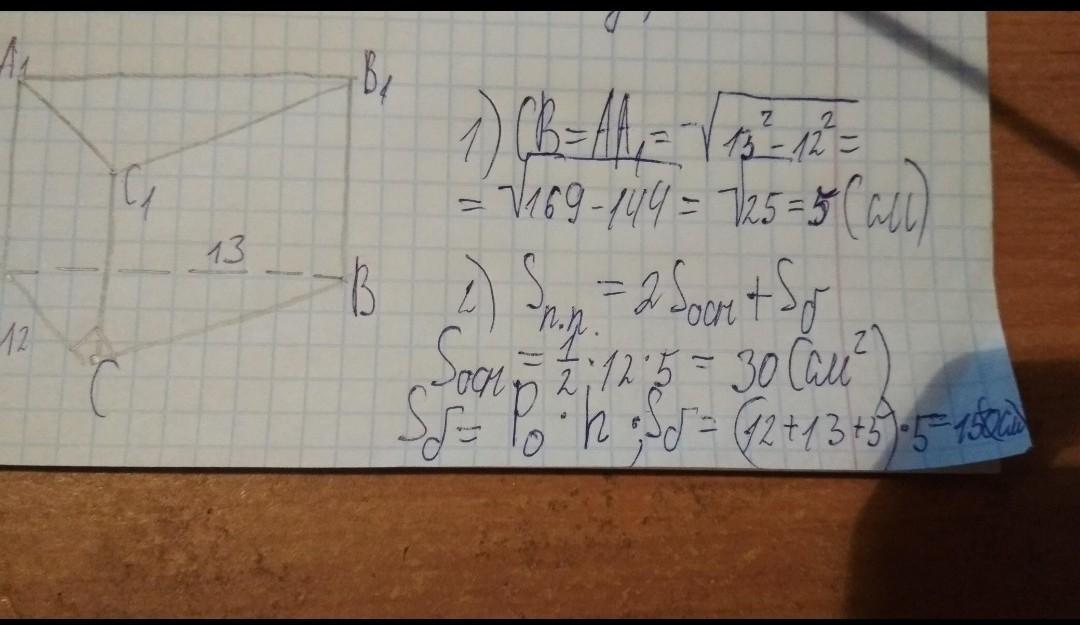 A₁
B₁
C₁
13
B
12
C
1) CB = AA₁ = √13² - 12² =
= √169 - 144 = √25 = 5 (см)
2) Sп.п. = 2Sосн + Sб
Sосн = 1/2 · 12 · 5 = 30 (см²)
Sб = Pо · h ; Sб = (12 + 13 + 5) · 5 = 150 (см